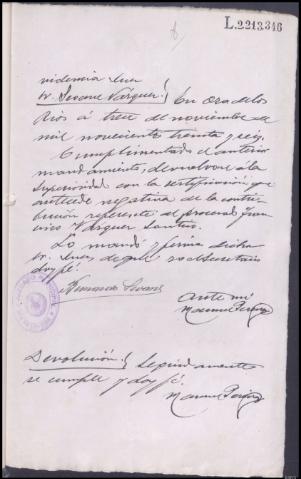 L.2213,346
videncia Juez
Sr. Seoane Vázquez. En
á trece de noviembre de
mil novecientos treinta y seis.
Cumplimentado el anterior
mandamiento, devuelvase á la
Superioridad con la certificación que
antecede negativa de la contri-
bución referente al procesado Fran-
cisco Vázquez
Lo mandó y firma dicho
Sr. Juez, de que yo Secretario
doy fé.
Seoane
Ante mí
Manuel
Devolución. Seguidamente
se cumple y doy fé.
Manuel